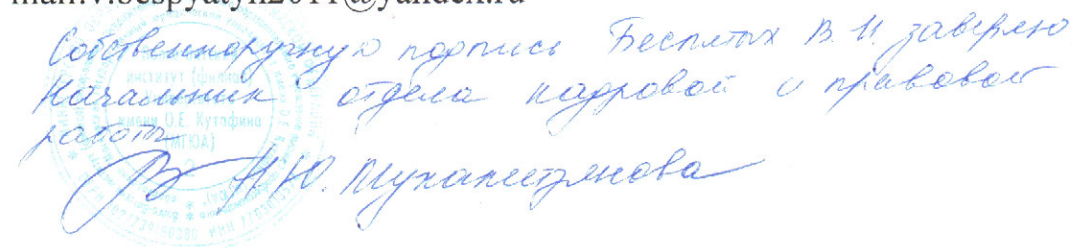 mail:v.bespyatyh2011@yandex.ru
Собственноручную подпись Беспятых В.И. заверяю
Начальник отдела кадровой и правовой
работы
Н.Ю. Мухаметзянова
институт (филиал)
имени О.Е. Кутафина
(МГЮА)